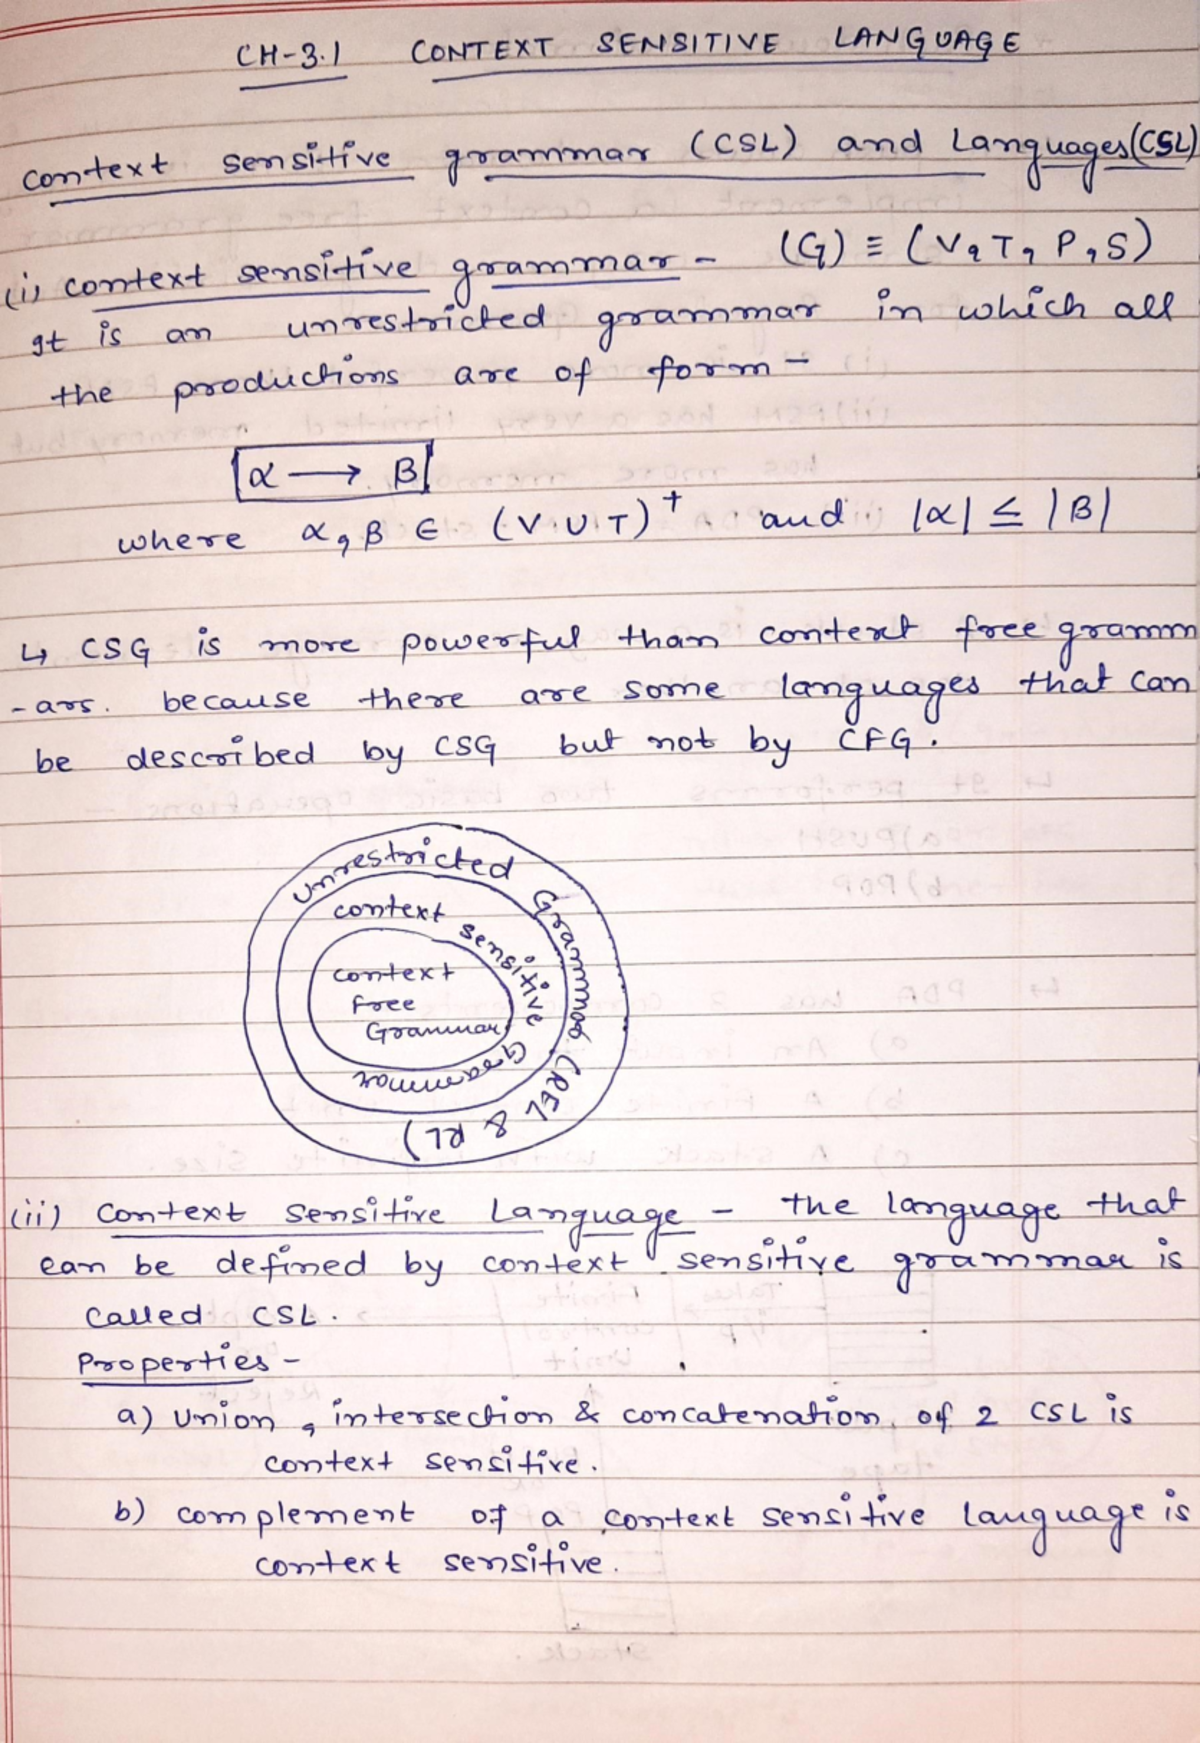 CH-3.1 CONTEXT SENSITIVE LANGUAGE
context sensitive grammar (CSL) and Languages(CSL)
(i) context sensitive grammar - (G) ≡ (V, T, P, S)
It is an unrestricted grammar in which all
the productions are of form -
α ⟶ β
where α, β ∈ (V ∪ T)⁺ and |α| ≤ |β|
↳ CSG is more powerful than context free gramm
-ars. because there are some languages that can
be described by CSG but not by CFG.
Unrestricted Grammar (REL & RL)
context sensitive Grammar
context
free
Grammar
(ii) Context Sensitive Language - the language that
can be defined by context sensitive grammar is
called CSL.
Properties -
a) Union, intersection & concatenation of 2 CSL is
context sensitive.
b) complement of a context sensitive language is
context sensitive.